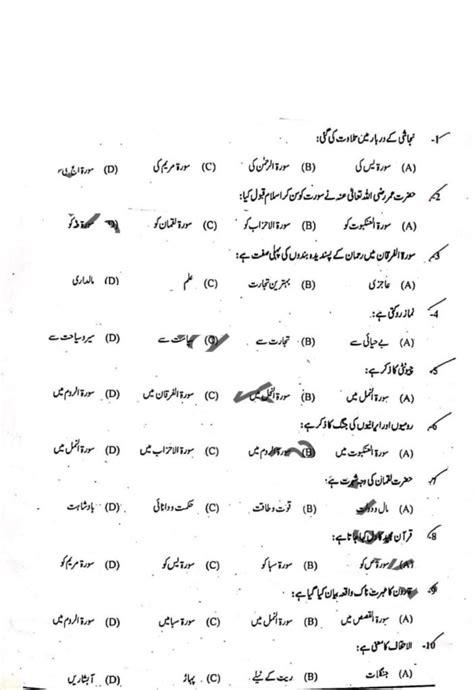 1- نجاشی کے دربار میں تلاوت کی گئی:
(A) سورۃ یٰس کی (B) سورۃ الرحمٰن کی (C) سورۃ مریم کی (D) سورۃ الحج کی
2- حضرت عمر رضی اللہ تعالیٰ عنہ نے سورت کو سن کر اسلام قبول کیا:
(A) سورۃ العنکبوت کو (B) سورۃ الاحزاب کو (C) سورۃ لقمان کو (D) سورۃ طٰہٰ کو
3- سورۃ الفرقان میں رحمان کے پسندیدہ بندوں کی پہلی صفت ہے:
(A) عاجزی (B) بہترین تجارت (C) علم (D) مالداری
4- نماز روکتی ہے:
(A) بے حیائی سے (B) تجارت سے (C) سیاست سے (D) سیر و سیاحت سے
5- چیونٹی کا ذکر ہے:
(A) سورۃ النمل میں (B) سورۃ میں (C) سورۃ الفرقان میں (D) سورۃ الروم میں
6- رومیوں اور ایرانیوں کی جنگ کا ذکر ہے:
(A) سورۃ العنکبوت میں (B) سورۃ الروم میں (C) سورۃ الاحزاب میں (D) سورۃ النمل میں
7- حضرت لقمان کی وجہ شہرت ہے:
(A) مال و دولت (B) قوت و طاقت (C) حکمت و دانائی (D) بادشاہت
8- قرآن مجید کا دل کہا جاتا ہے:
(A) سورۃ ص کو (B) سورۃ سبا کو (C) سورۃ یٰس کو (D) سورۃ الروم کو
9- قارون کا عبرت ناک واقعہ بیان کیا گیا ہے:
(A) سورۃ القصص میں (B) سورۃ النمل میں (C) سورۃ سبا میں (D) سورۃ الروم میں
10- الاحقاف کا معنی ہے:
(A) جنگلات (B) ریت کے ٹیلے (C) پہاڑ (D) آبشاریں